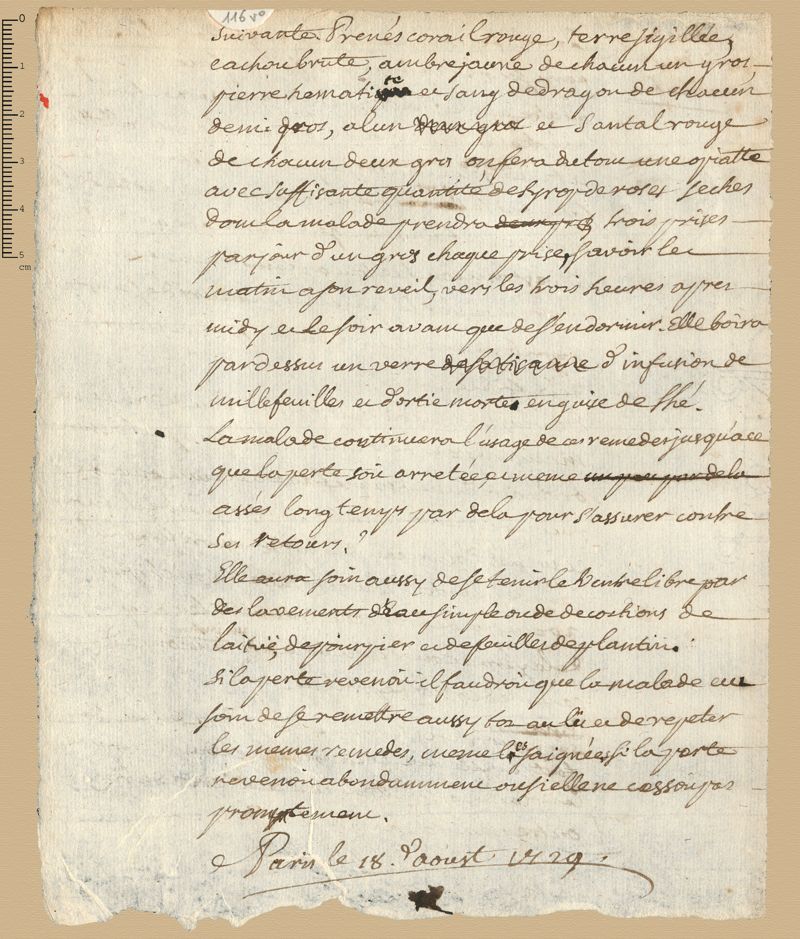 116 vo
suivante. Prenés corail rouge, terre sigillée,
cachou brute, ambre jaune de chacun un gros
pierre hematite et sang de dragon de chacun
demi gros, alun deux gros et Santal rouge
de chacun deux gros on fera du tout une opiatte
avec suffisante quantité de syrop de roses seches
dont la malade prendra trois prises
par jour d'un gros chaque prise, savoir le
matin a son reveil, vers les trois heures apres
midy et le soir avant que de s'endormir. Elle boira
par dessus un verre de sa tisanne d'infusion de
millefeuilles et d'ortie morte en guise de thé.
La malade continuera l'usage de ces remedes jusqu'a ce
que la perte soit arretée et meme un peu par dela
assés longtemps par dela pour s'assurer contre
ses retours.
Elle aura soin aussy de se tenir le ventre libre par
des lavements d'Eau simple ou de decoctions de
laituë, de pourpier et de feuilles de plantin.
Si la perte revenoit il faudroit que la malade eut
soin de se remettre aussy tot au lit et de repeter
les memes remedes, meme les saignées si la perte
revenoit abondamment ou si elle ne cessoit pas
promptement.
a Paris le 18 d'aoust 1729.
0
1
2
3
4
5
cm